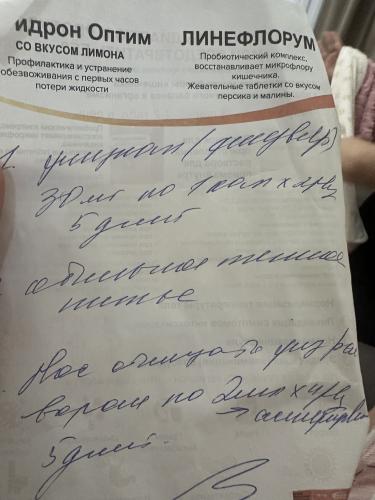 идрон Оптим
СО ВКУСОМ ЛИМОНА
Профилактика и устранение
обезвоживания с первых часов
потери жидкости
ЛИНЕФЛОРУМ
Пробиотический комплекс,
восстанавливает микрофлору
кишечника.
Жевательные таблетки со вкусом
персика и малины.
30мг по 1 кап х 2р/д
5 дней
обильное теплое
питье
Нос очищать физ рас
вором по 2мл х 4р/д
→ аспирировать
5 дней.